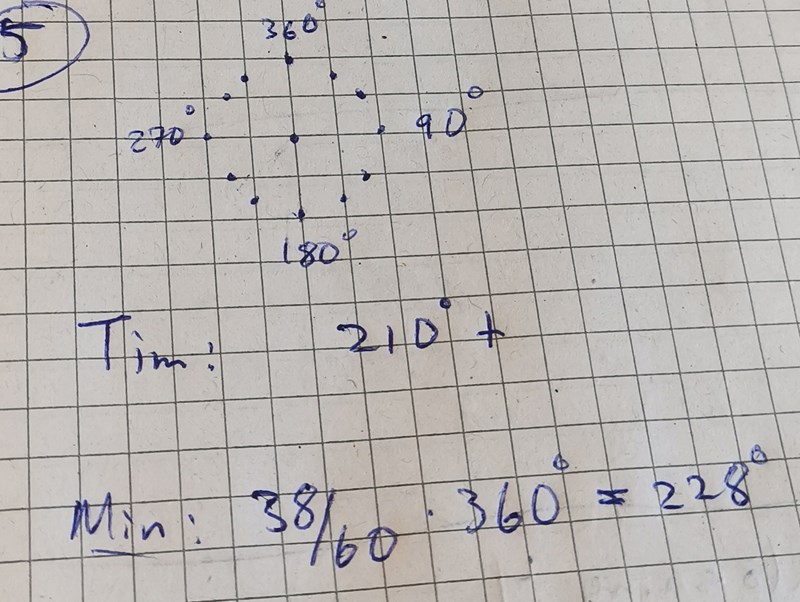 5
360°
270°
90°
180°
Tim: 210° +
Min: 38/60 · 360° = 228°